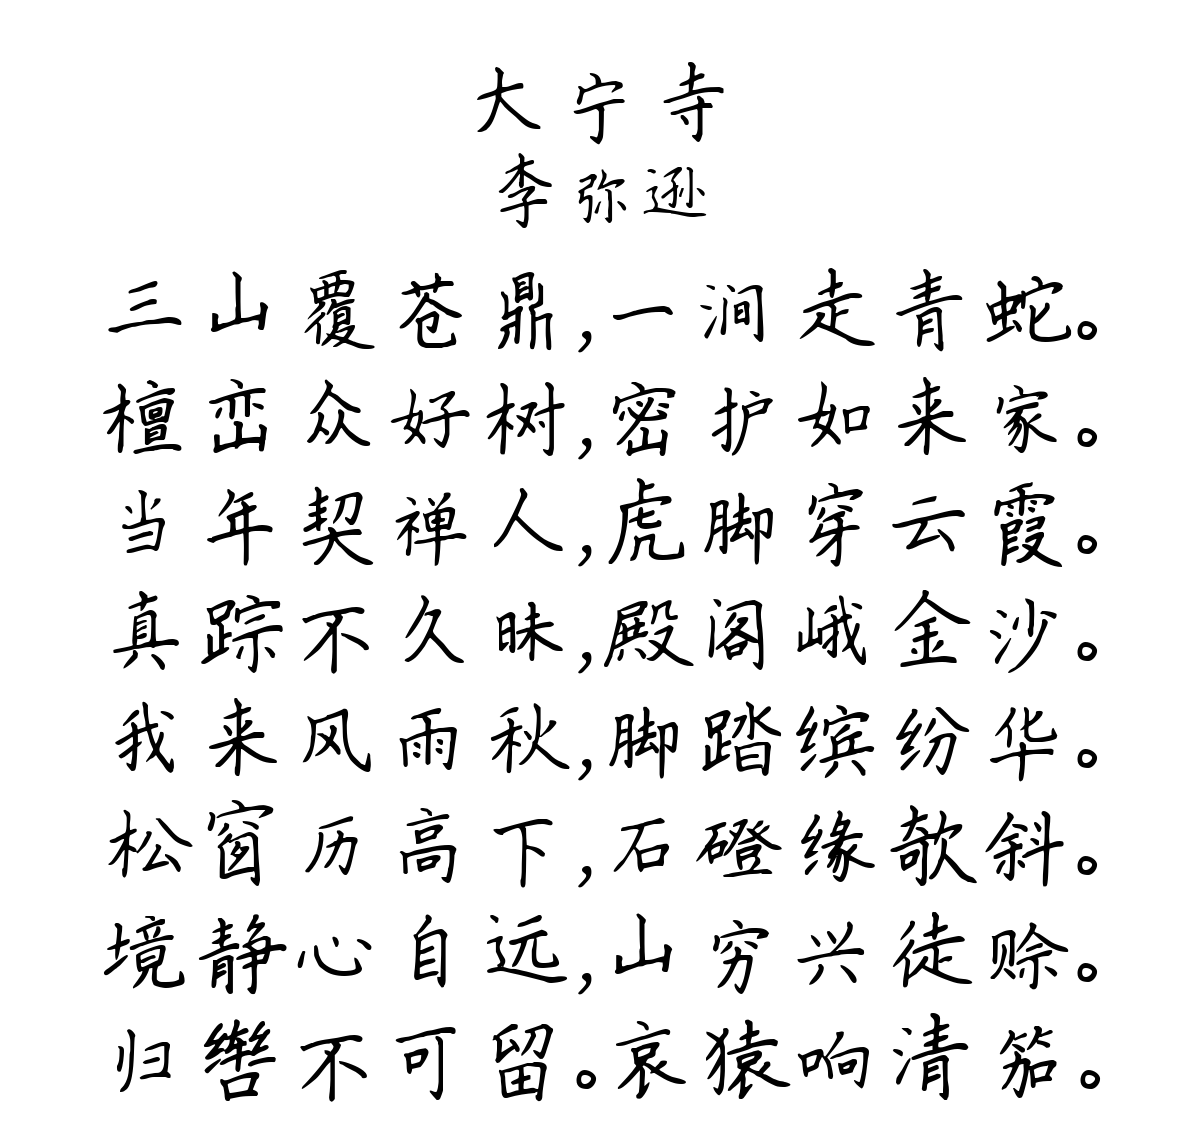 大宁寺
李弥逊
三山覆苍鼎,一涧走青蛇。
檀峦众好树,密护如来家。
当年契禅人,虎脚穿云霞。
真踪不久昧,殿阁峨金沙。
我来风雨秋,脚踏缤纷华。
松窗历高下,石磴缘欹斜。
境静心自远,山穷兴徒赊。
归辔不可留。哀猿响清笳。